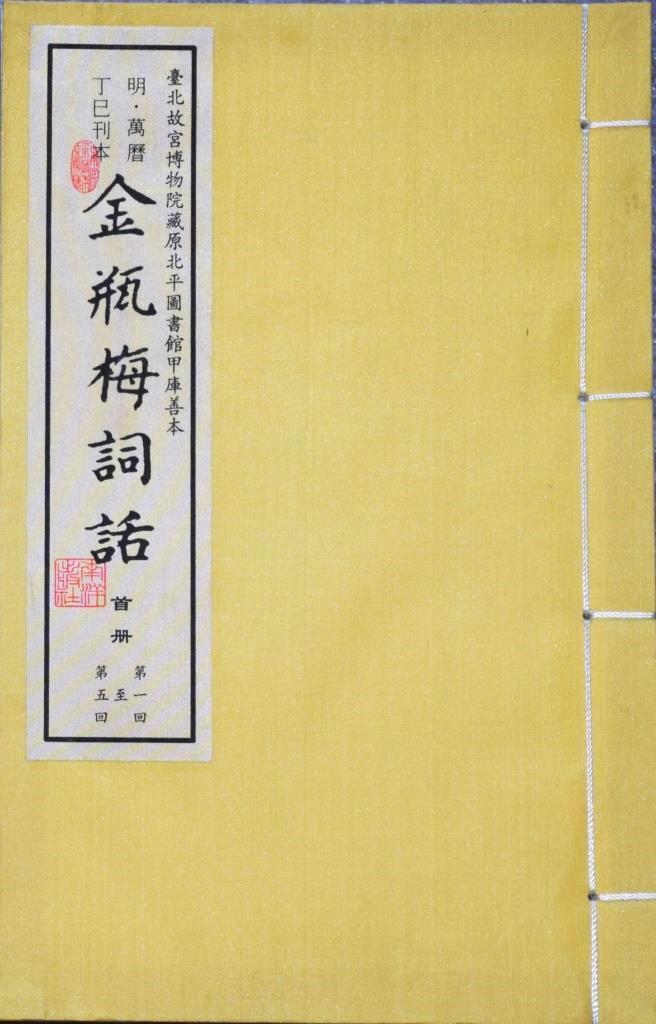 臺北故宮博物院藏原北平圖書館甲庫善本
明·萬曆
丁巳刊本
金瓶梅詞話
首册
第一回
至
第五回
南洋
出版社